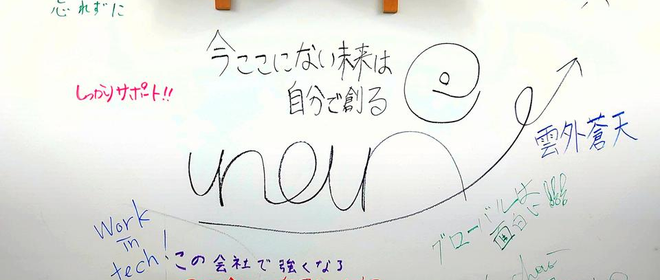 忘れずに
今ここにない未来は
自分で創る
しっかりサポート!!
雲外蒼天
グローバルは
面白い!!!
Work
in
tech!
この会社で強くなる